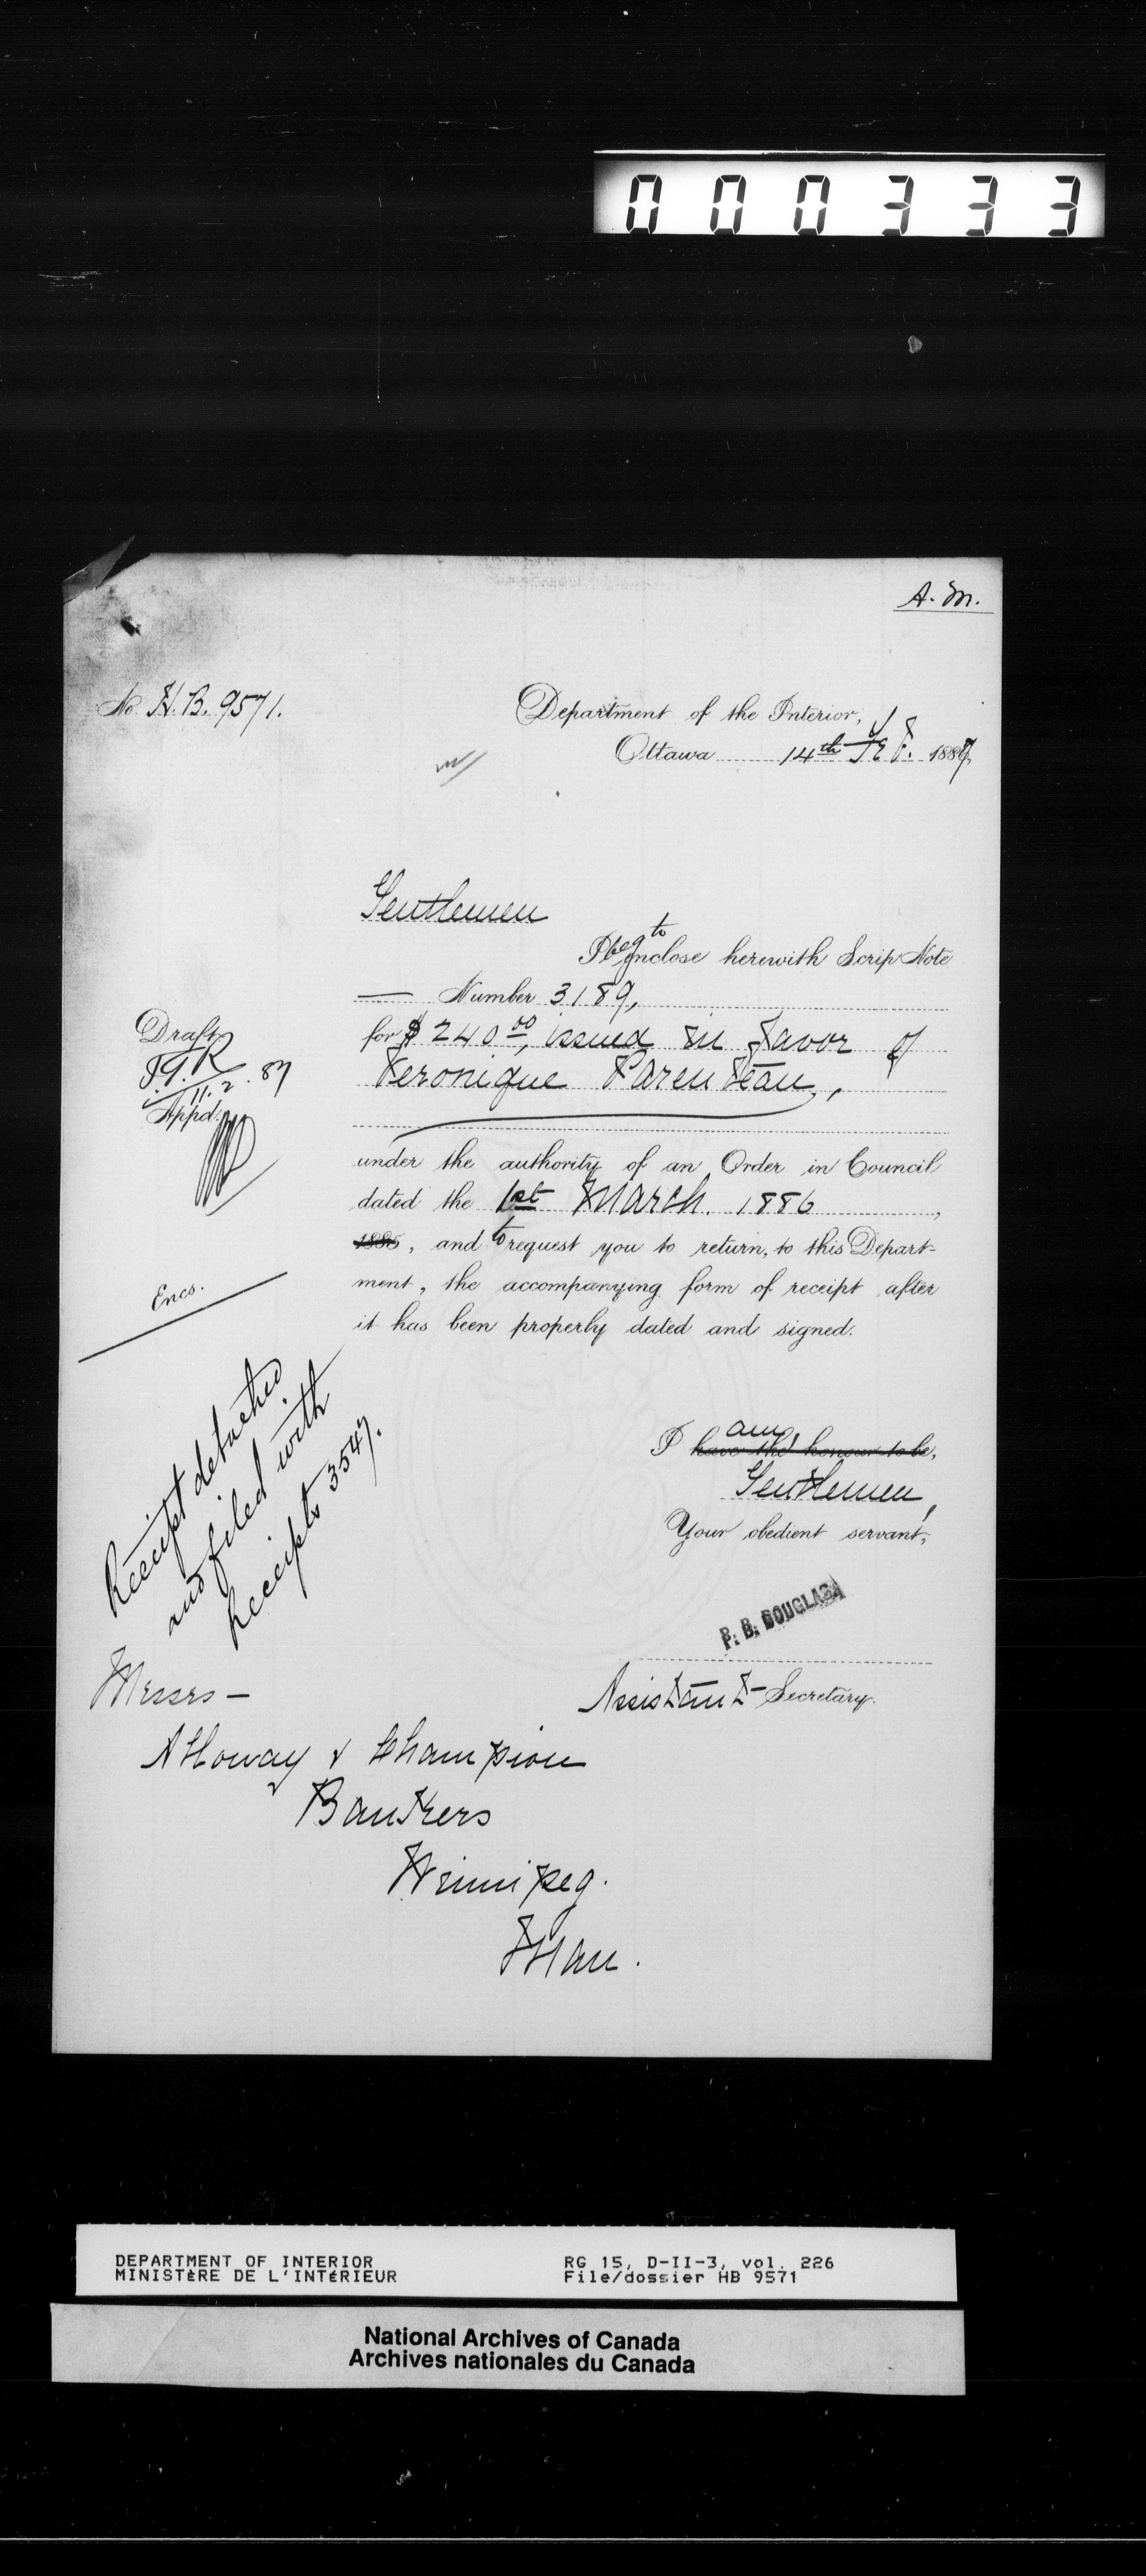 000333
A. M.
No. H.B. 9571.
Department of the Interior,
Ottawa 14th Feb. 1887
Gentlemen
I beg to enclose herewith Scrip Note
— Number 3189,
for $240 00, issued in favor of
Veronique Parenteau,
under the authority of an Order in Council
dated the 1st March. 1886,
1886, and to request you to return, to this Depart-
ment, the accompanying form of receipt after
it has been properly dated and signed.
Draft
11.2.87
Appd.
Encs.
Receipt detached
and filed with
receipts 3547.
I am, have the honour to be,
Gentlemen,
Your obedient servant,
P. B. DOUGLAS
Assistant Secretary.
Messrs –
Alloway & Champion
Bankers
Winnipeg.
Man.
DEPARTMENT OF INTERIOR
MINISTÈRE DE L'INTÉRIEUR
RG 15, D-II-3, vol. 226
File/dossier HB 9571
National Archives of Canada
Archives nationales du Canada